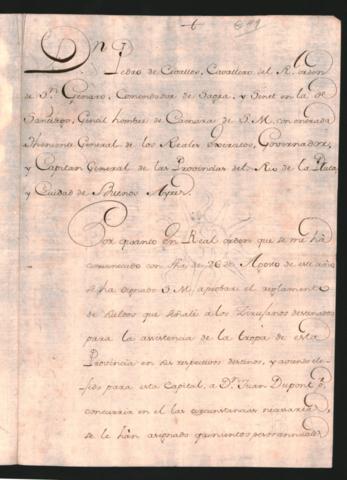 Dn.
Pedro de Cevallos, Cavallero del Rl. orden
de Sn. Genaro, Comendador de Sagra, y Senet en la de
Santiago, Gentil hombre de Camara de S. M. con entrada
Theniente General de los Reales Exercitos, Governador,
y Capitan General de las Provincias del Rio de la Plata
y Ciudad de Buenos Ayres.
Por quanto en Real orden que se me ha
comunicado con fha de 26 de Agosto de este año
se ha dignado S. M. aprobar el reglamento
de sueldos que señalé a los Zirujanos destinados
para la asistencia de la tropa de esta
Provincia en sus respectivos destinos, y
para esta Capital, a Dn. Juan Dupont
concurria en el las circunstancias necesarias,
se le han asignado quinientos pesos annuales